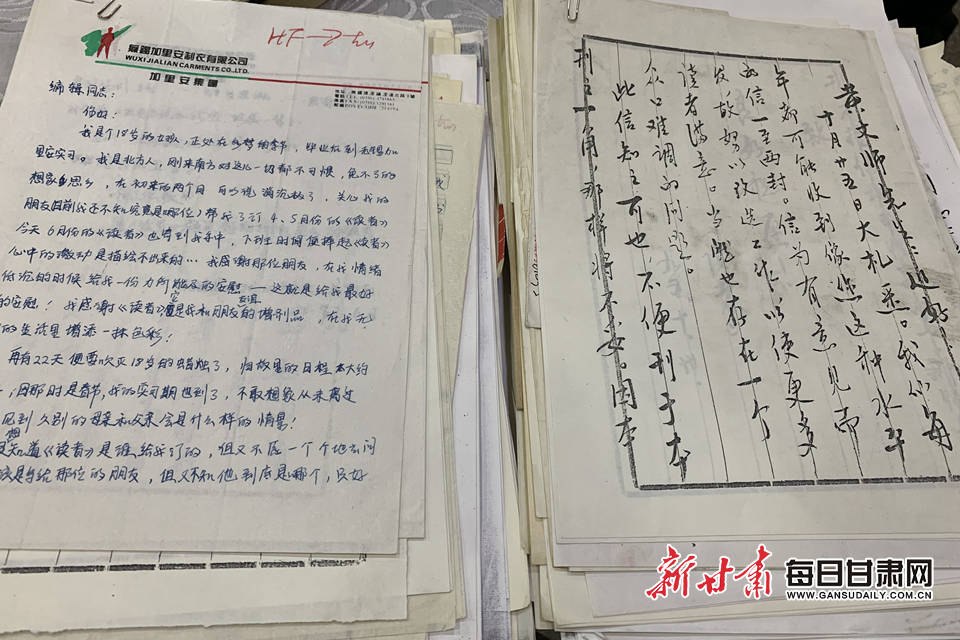 无锡加里安制衣有限公司
WUXI JIALIAN GARMENTS CO.,LTD.
加里安集团
HF
编辑同志:
你好:
我是个18岁的女孩,正处在多梦的季节,毕业后到无锡加
里安实习。我是北方人,刚来南方对这儿一切都不习惯,免不了的
想家思乡,在初来的两个月可以说满沉教了,关心我的
朋友(目前我还不知究竟是哪位)帮我订了4、5月份的《读者》
今天6月份的《读者》也寄到我手中,下班时间便捧起《读者》
心中的激动是描绘不出来的…我感谢那位朋友,在我情绪
低沉的时候给我一份力所能及的安慰——这就是给我最好
的安慰!我感谢《读者》是我和朋友的增刊品,在我无
的生活里增添一抹色彩!
再有22天便要吹灭18岁的蜡烛了,归故里的日程大大约
,因那时是春节,我的实习期也到了,不敢想象从未离过
见到久别的母亲和父亲会是什么样的情景!
想知道《读者》是谁给我订的,但又不愿一个个地去问
该是寄给那位的朋友,但又不知他到底是哪个,只好
黄文师先生:近好
十月廿五日大札悉。我们每
年都可能收到像您这种水平
的信一至两封。信为有意见而
发,故努以改选工作,以使更多
读者满意。当然也存在一个
众口难调的问题。
此信知之可也,不便刊于本
刊一角,那样将不妥。因本
新甘肃 每日甘肃网
WWW.GANSUDAILY.COM.CN